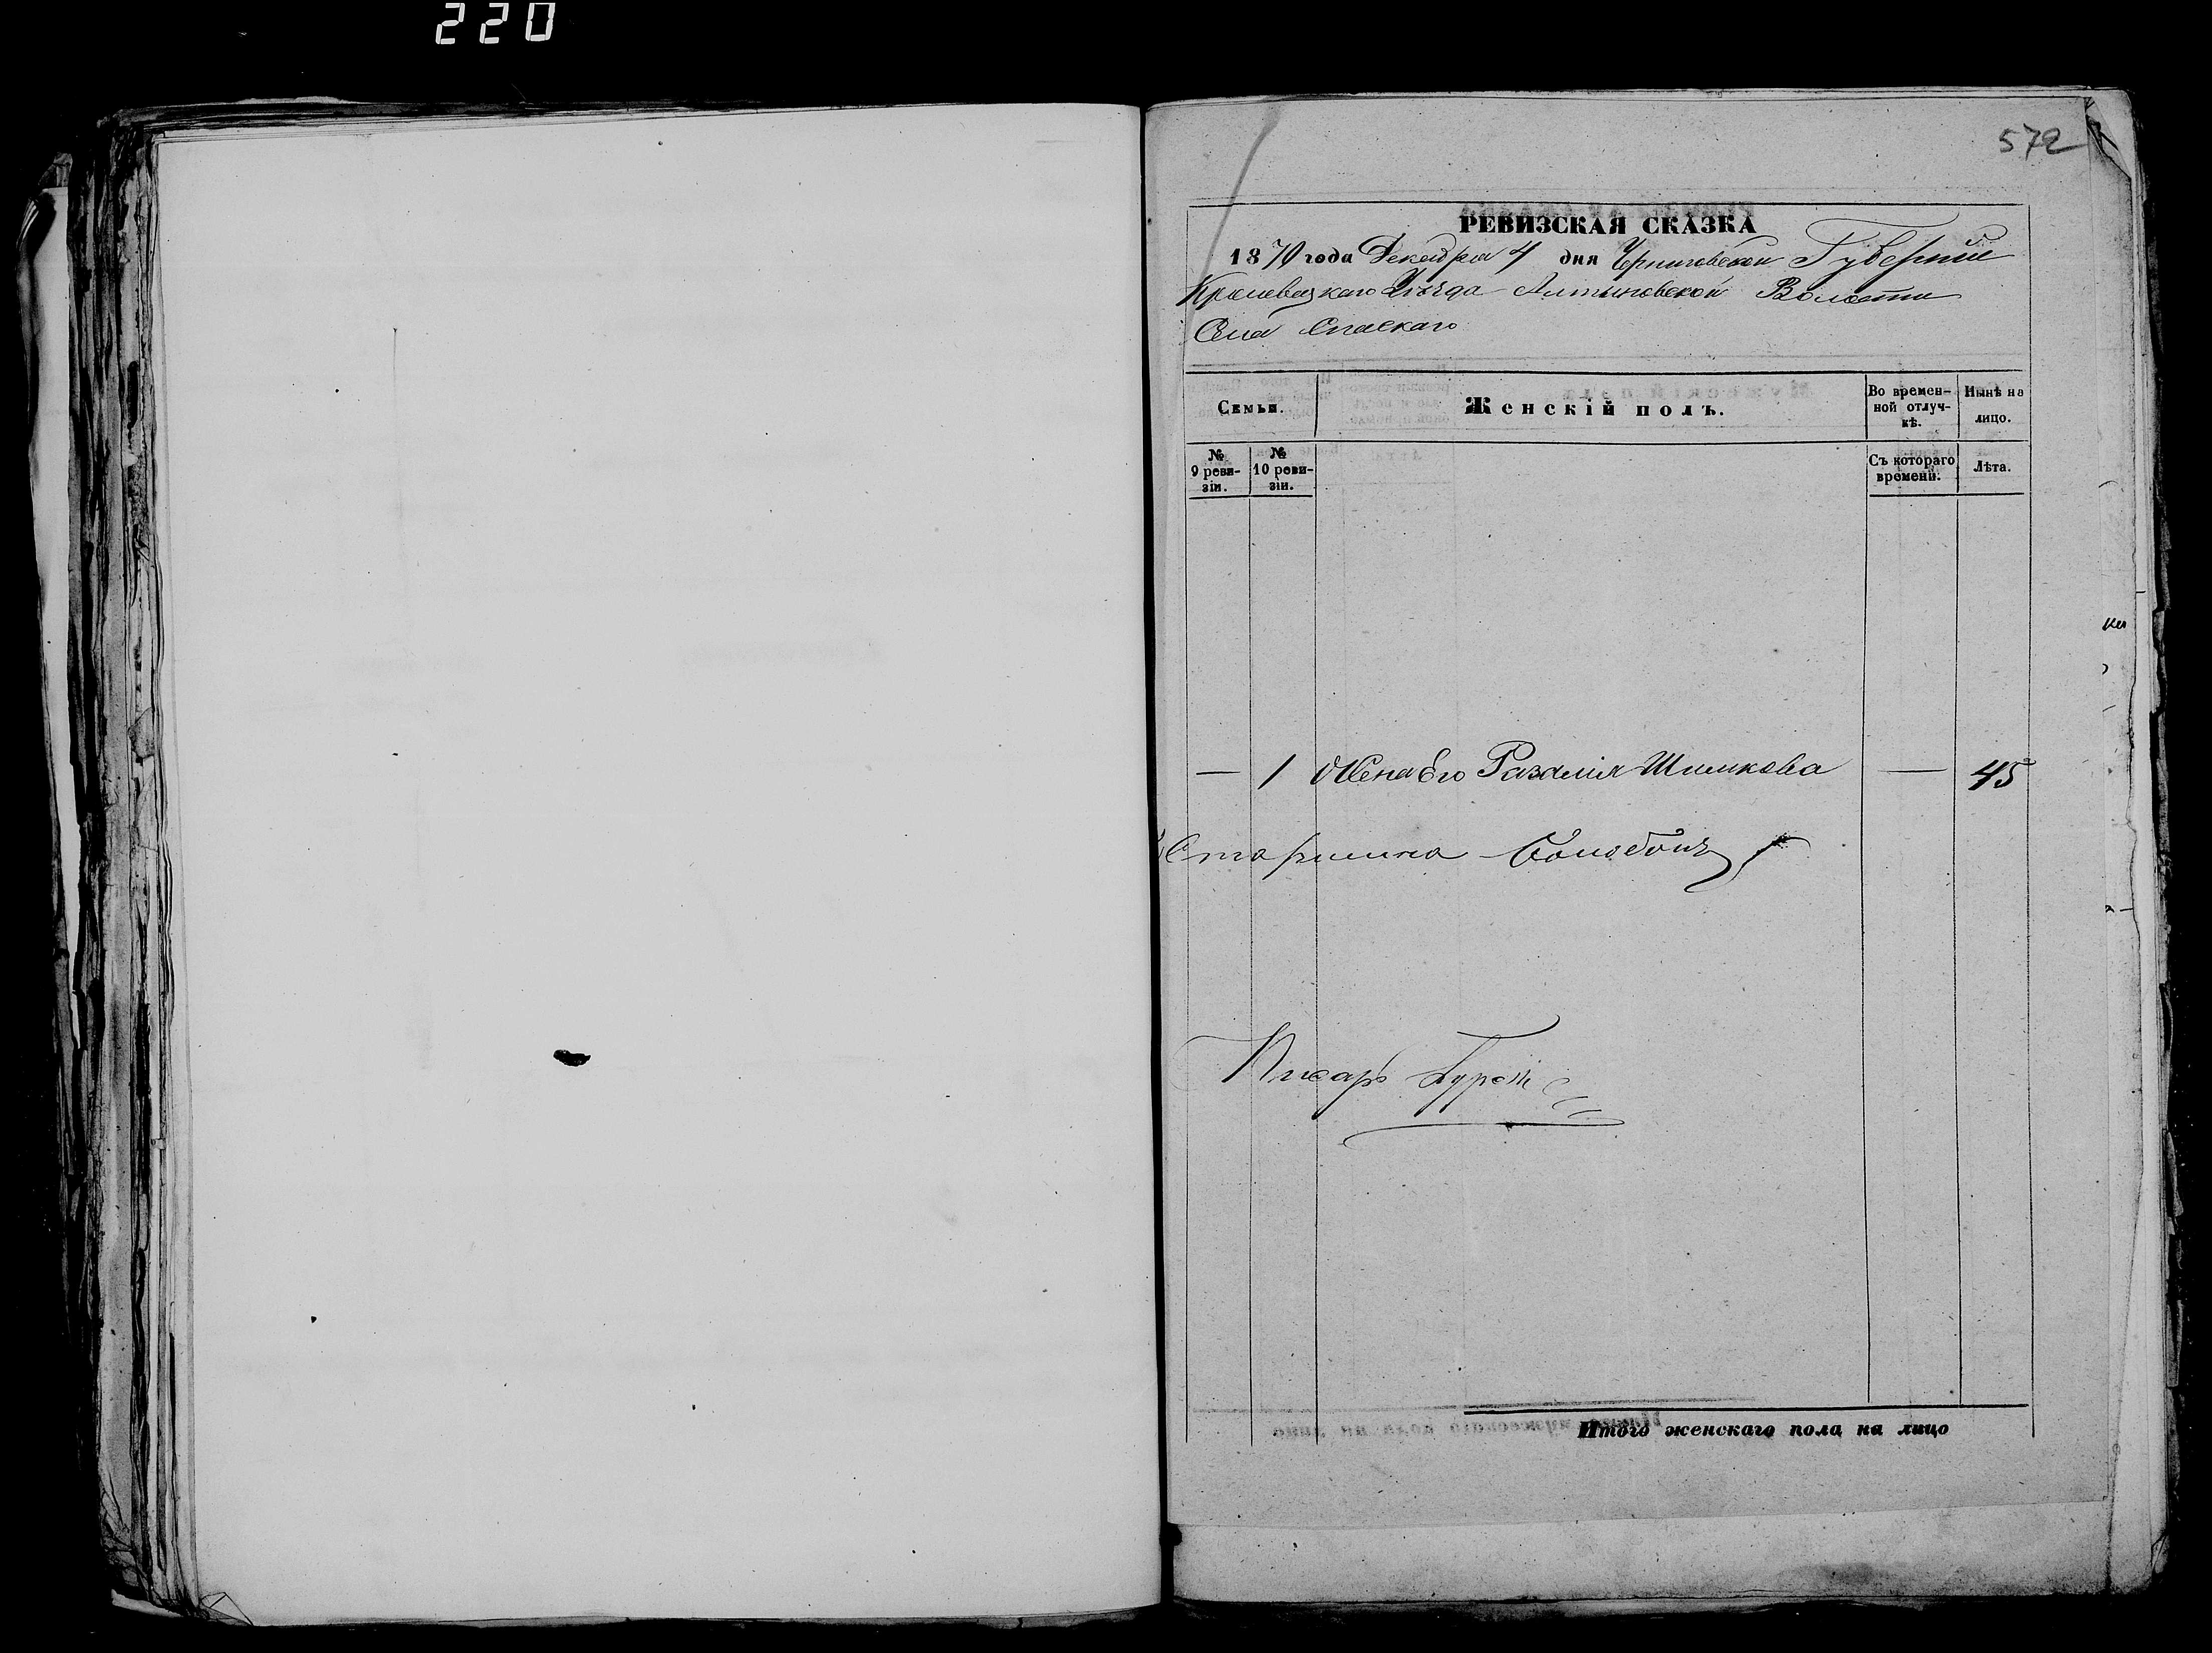 220
572
РЕВИЗСКАЯ СКАЗКА
1870 года Декабря 4 дня Черниговской Губерніи
Кролевецкаго Уѣзда Алтыновской Волости
Села Спаскаго
Семьи.
Женскій полъ.
Во времен-
ной отлуч-
кѣ.
Нынѣ на
лицо.
№
9 реви-
зіи.
№
10 реви-
зіи.
Съ котораго
времени.
Лѣта.
— 1 Жена Его Разалія Шишкова — 45
Старшина
Писарь
Итого женскаго пола на лицо